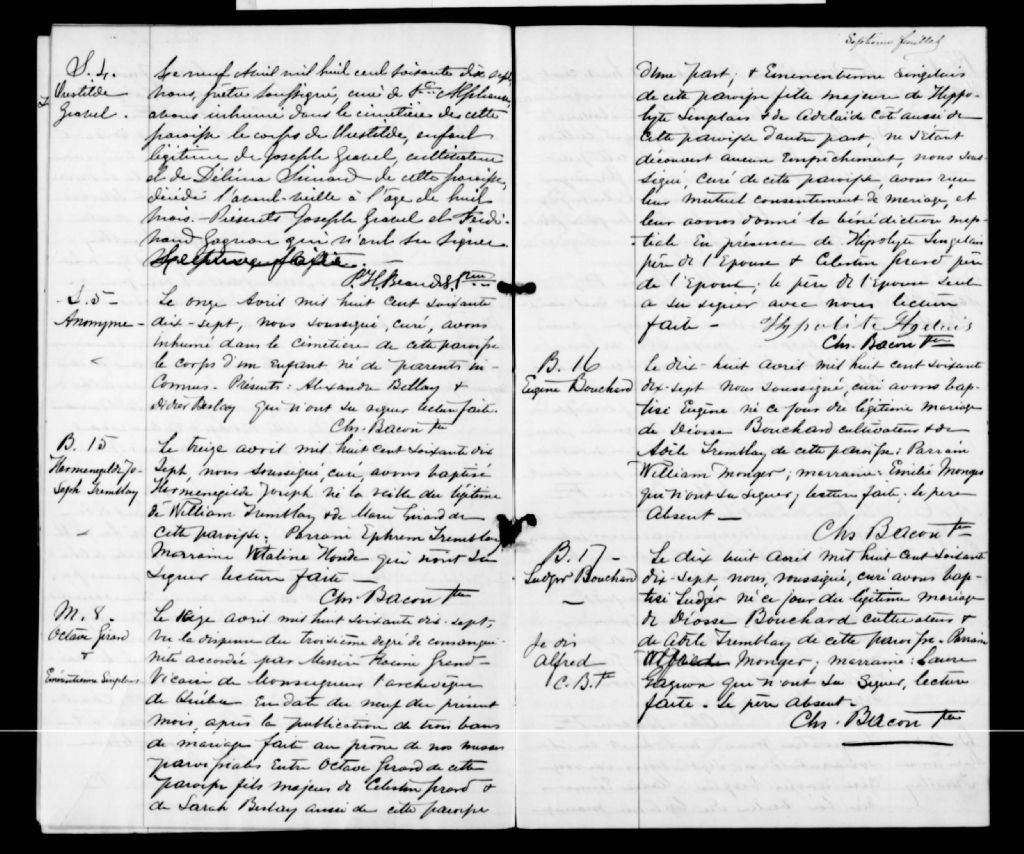 Septième feuillet
S. 4.
Gravel.
Le neuf Avril mil huit cent soixante dix sept
nous, prêtre soussigné, curé de St Alphonse,
avons inhumé dans le cimetière de cette
paroisse le corps de enfant
légitime de Joseph Gravel, cultivateur
et de Délima Simard de cette paroisse,
décédé l'avant-veille à l'âge de huit
mois. - Présents Joseph Gravel et Ferdi-
nand Gagnon qui n'ont su signer
lecture faite.
S. 5 -
Anonyme -
Le onze Avril mil huit cent soixante
dix-sept, nous soussigné, curé, avons
inhumé dans le cimetière de cette paroisse
le corps d'un Enfant né de parents in-
connus. Présents: Alexandre &
Didier Beslay qui n'ont su signer lecture faite.
Chs. Bacon Ptre
B. 15
Hermenegilde Jo-
seph Tremblay
-
Le treize avril mil huit cent soixante dix
Sept, nous soussigné, curé, avons baptisé
Hermenegilde Joseph né la veille du légitime
de William Tremblay & de Marie Girard de
cette paroisse. Parrain Ephrem Tremblay
Marraine Vitaline qui n'ont su
signer lecture faite -
Chs Bacon Ptre
M. 8.
Octave Girard
&
Emérentienne Singelais
Le mil huit cent soixante dix-sept-
vu la dispense du troisième degré de consangui-
nité accordée par Messire Grand-
Vicaire de Monseigneur l'archevêque
de Québec En date du neuf du présent
mois, après la publication de trois bans
de mariage faite au prône de nos messes
paroissiales Entre Octave Girard de cette
paroisse fils majeur de Célestin Girard &
de Sarah Beslay aussi de cette paroisse
d'une part; & Emérentienne Singelais
de cette paroisse fille majeure de Hippo-
lyte Singelais & de Adelaide Coté aussi de
cette paroisse d'autre part ne s'étant
découvert aucun Empêchement, nous sous-
signé curé de cette paroisse avons reçu
leur mutuel consentement de mariage, et
leur avons donné la bénédiction nup-
tiale En présence de Hipolyte Singelais
père de l'Epouse & Célestin Girard père
de l'Epoux; le père de l'Epouse seul
a su signer avec nous lecture
faite -
Chs. Bacon Ptre
B. 16
Eugène Bouchard
Le dix-huit avril mil huit cent soixante
dix-sept nous soussigné, curé avons bap-
tisé Eugène né ce jour du légitime mariage
de Bouchard cultivateur & de
Adèle Tremblay de cette paroisse: Parrain
William Monger; marraine: Emilie Monger
qui n'ont su signer; lecture faite. le père
Absent -
Chs Bacon Ptre
B. 17 -
Ludger Bouchard
-
Le dix huit avril mil huit Cent soixante
dix-sept nous, soussigné, curé avons bap-
tisé Ludger né ce jour du légitime mariage
de Bouchard cultivateur &
de Adèle Tremblay de cette paroisse. Parrain
Alfred Monger; marraine: Laure
Gagnon qui n'ont su signer, lecture
faite. le père absent.
Je dis
Alfred
C. B. Ptre
Chs. Bacon Ptre